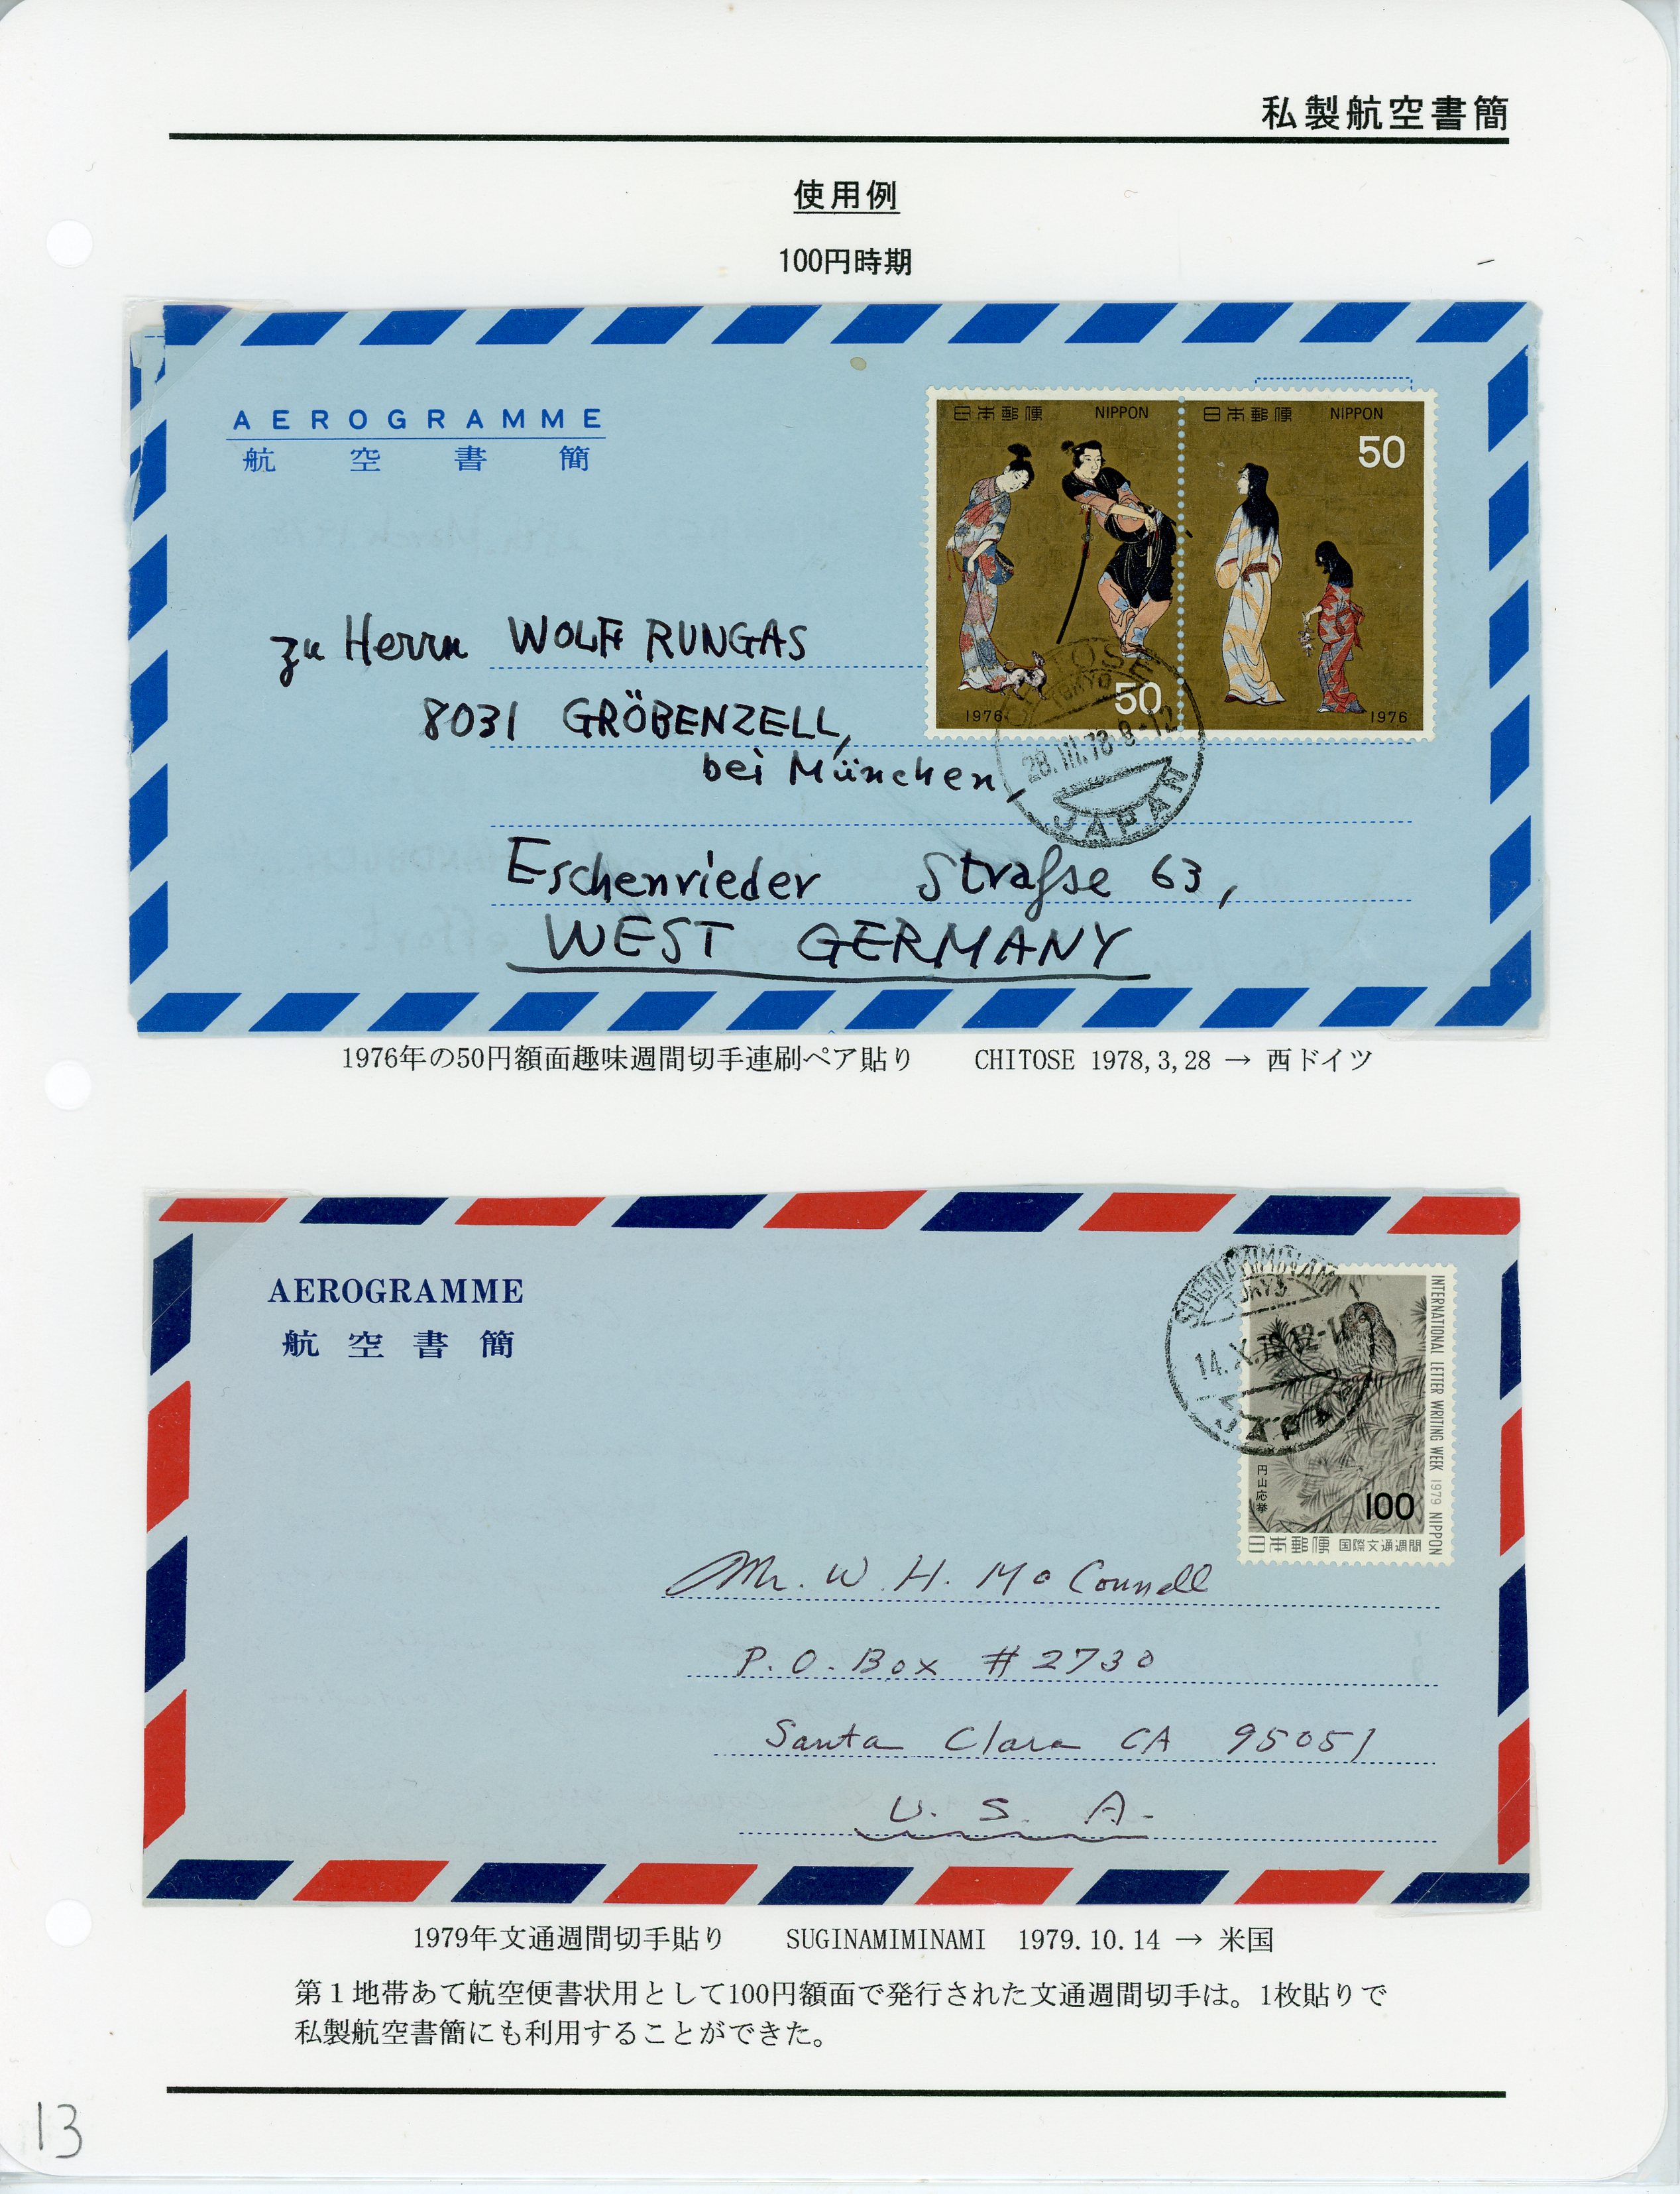 私製航空書簡
使用例
100円時期
AEROGRAMME
航空書簡
日本郵便 NIPPON
50
1976
日本郵便 NIPPON
50
1976
CHITOSE
TOKYO
28.III.78 8-12
JAPAN
zu Herrn WOLFF RUNGAS
8031 GRÖBENZELL,
bei München
Eschenrieder Straße 63,
WEST GERMANY
1976年の50円額面趣味週間切手連刷ペア貼り CHITOSE 1978,3,28 → 西ドイツ
AEROGRAMME
航空書簡
SUGINAMIMINAMI
TOKYO
14.X.79 12-
JAPA
INTERNATIONAL LETTER WRITING WEEK 1979 NIPPON
円山応挙
100
日本郵便 国際文通週間
Mr. W. H. McConnell
P. O. Box #2730
Santa Clara CA 95051
U. S. A.
1979年文通週間切手貼り SUGINAMIMINAMI 1979.10.14 → 米国
第1地帯あて航空便書状用として100円額面で発行された文通週間切手は。1枚貼りで
私製航空書簡にも利用することができた。
13